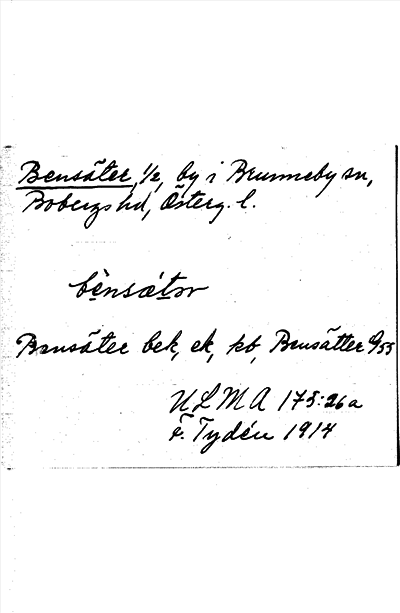 Bensäter, 1/2, by i Brunneby sn,
Bobergs hd, Österg. l.
bènsǽtər
Bensäter bek, ek, kb, Bensätter /55
ULMA 175:26a
F. Tydén 1914